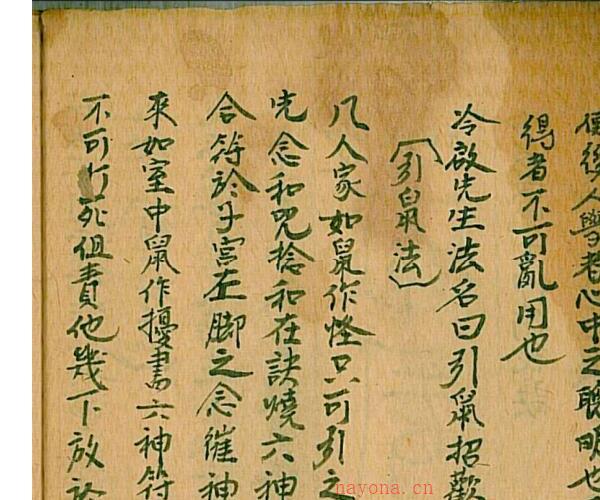 便後人學者心中之聰明也
得者不可亂用也
冷啟先生法名曰引鼠招歡
〔引鼠法〕
凡人家如鼠作怪只可引之
先念和咒捻和在訣燒六神
合符於子宮左脚之念催神
來如室中鼠作擾書六神符
不可打死但責他幾下放於
nayona.cn